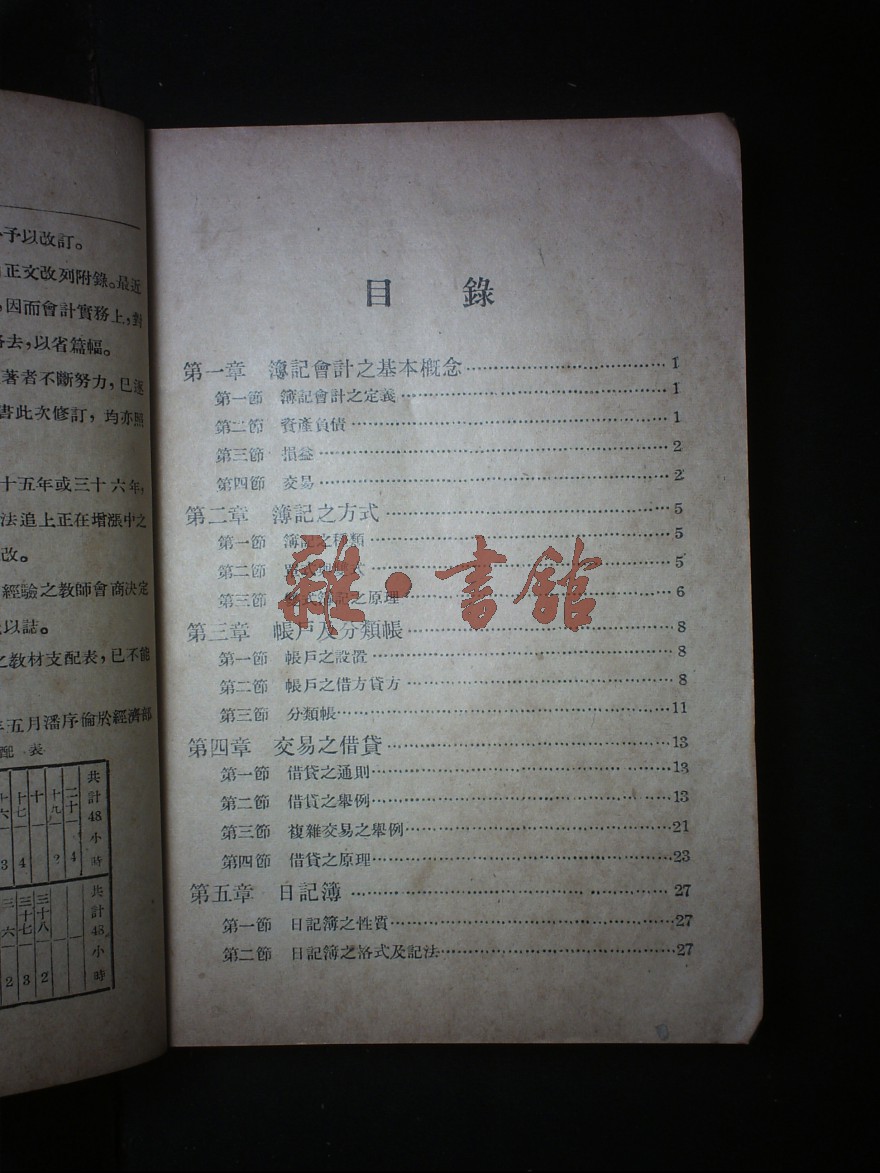 予以改訂。
正文改列附錄。最近
,因而會計實務上,對
去,以省篇幅。
著者不斷努力,已逐
書此次修訂,均亦照
十五年或三十六年,
法追上正在增漲中之
改。
經驗之教師會商決定
以誌。
之教材支配表,已不能
年五月潘序倫於經濟部
配表
共計48小時
二十一 4
十九 2
十
十七 4
十六 3
共計48小時
三十八 2
三十七 3
三六 2
目錄
第一章 簿記會計之基本概念 1
第一節 簿記會計之定義 1
第二節 資產負債 1
第三節 損益 2
第四節 交易 2
第二章 簿記之方式 5
第一節 簿記之種類 5
第二節 單式與複式 5
第三節 複式簿記之原理 6
雜·書館
第三章 帳戶及分類帳 8
第一節 帳戶之設置 8
第二節 帳戶之借方貸方 8
第三節 分類帳 11
第四章 交易之借貸 13
第一節 借貸之通則 13
第二節 借貸之舉例 13
第三節 複雜交易之舉例 21
第四節 借貸之原理 23
第五章 日記簿 27
第一節 日記簿之性質 27
第二節 日記簿之格式及記法 27